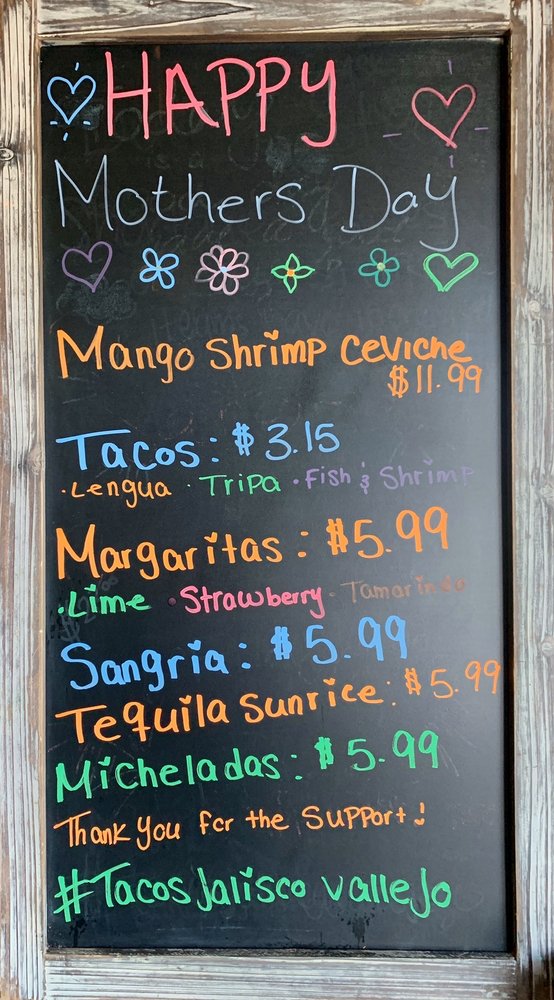 HAPPY
Mothers Day
Mango Shrimp Ceviche
$11.99
Tacos: $3.15
·Lengua ·Tripa ·Fish & Shrimp
Margaritas: $5.99
·Lime ·Strawberry ·Tamarindo
Sangria: $5.99
Tequila Sunrice: $5.99
Micheladas: $5.99
Thank you for the support!
#TacosJalisco vallejo